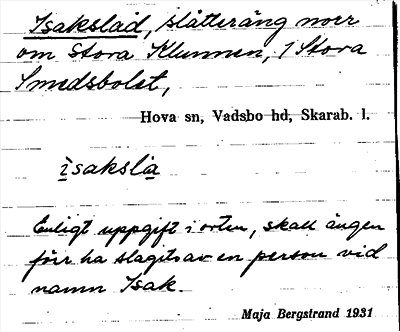 Isakslad, slåtteräng norr
om Stora Klunnen, 1 Stora
Smedsbolst,
Hova sn, Vadsbo hd, Skarab. l.
ìsaksla
Enligt uppgift i orten, skall ängen
förr ha slagits av en person vid
namn Isak.
Maja Bergstrand 1931